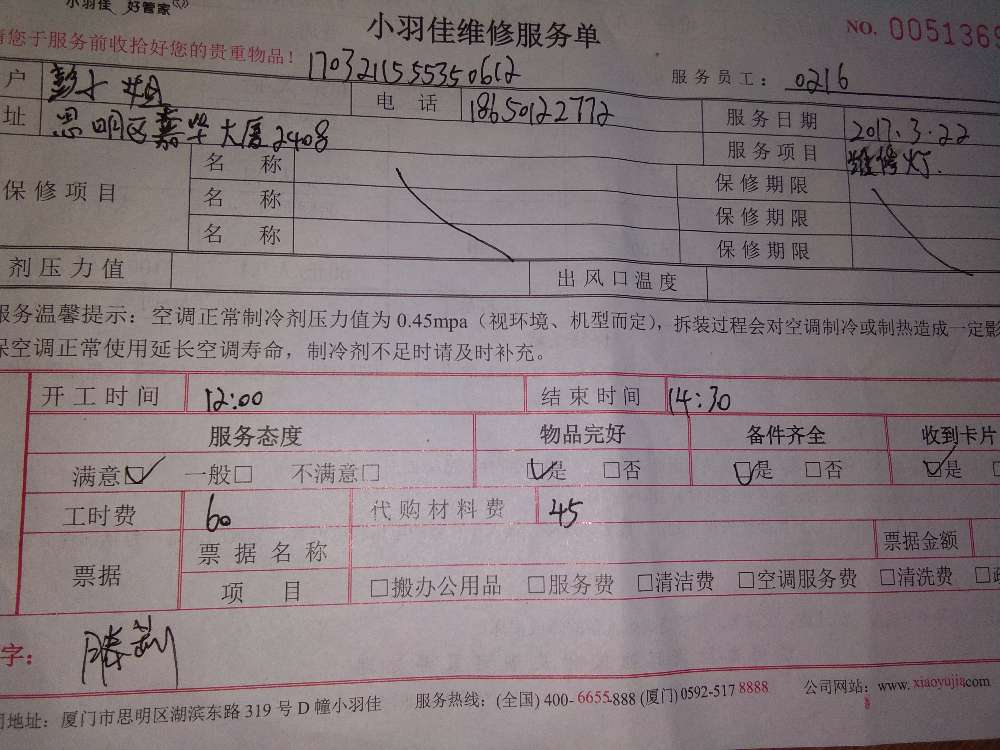 小羽佳 好管家
小羽佳维修服务单
NO. 0051369
请您于服务前收拾好您的贵重物品！ 17032115555350612 服务员工： 0216
户 彭小姐 电话 18650122772 服务日期 2017.3.22
址 思明区嘉华大厦2408 服务项目 维修灯.
保修项目 名称 保修期限
名称 保修期限
名称 保修期限
剂压力值 出风口温度
服务温馨提示：空调正常制冷剂压力值为0.45mpa（视环境、机型而定），拆装过程会对空调制冷或制热造成一定影
保空调正常使用延长空调寿命，制冷剂不足时请及时补充。
开工时间 12:00 结束时间 14:30
服务态度 物品完好 备件齐全 收到卡片
满意☑ 一般□ 不满意□ ☑是 □否 ☑是 □否 ☑是
工时费 60 代购材料费 45
票据 票据名称 票据金额
项目 □搬办公用品 □服务费 □清洁费 □空调服务费 □清洗费
字：
司地址：厦门市思明区湖滨东路319号D幢小羽佳 服务热线：(全国) 400-6655-888 (厦门) 0592-517 8888 公司网站：www.xiaoyujia.com